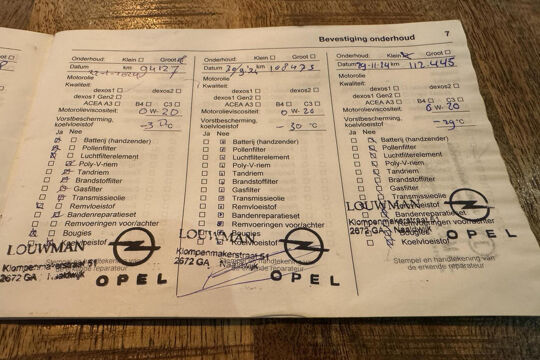 Bevestiging onderhoud 7
Onderhoud: Klein Groot
Datum km
Motorolie
Kwaliteit:
dexos1
dexos1 Gen2
ACEA A3 B4 C3
Motorolieviscositeit: 0 W- 20
Vorstbescherming,
koelvloeistof -30 °C
Ja Nee
Batterij (handzender)
Pollenfilter
Luchtfilterelement
Poly-V-riem
Tandriem
Brandstoffilter
Gasfilter
Transmissieolie
Remvloeistof
Bandenreparatieset
Remvoeringen voor/achter
Bougies
Koelvloeistof
LOUWMAN
Klompenmakerstraat 51
2672 GA Naaldwijk
OPEL
Onderhoud: Klein Groot
Datum km 108473
Motorolie
Kwaliteit:
dexos1
dexos1 Gen2
ACEA A3 B4 C3
Motorolieviscositeit: 0 W- 20
Vorstbescherming,
koelvloeistof -30 °C
Ja Nee
Batterij (handzender)
Pollenfilter
Luchtfilterelement
Poly-V-riem
Tandriem
Brandstoffilter
Gasfilter
Transmissieolie
Remvloeistof
Bandenreparatieset
Remvoeringen voor/achter
Bougies
Koelvloeistof
LOUWMAN
Klompenmakerstraat 51
2672 GA Naaldwijk
OPEL
Onderhoud: Klein Groot
Datum 29-11-24 km 112.445
Motorolie
Kwaliteit:
dexos1
dexos1 Gen2
ACEA A3 B4 C3
Motorolieviscositeit: 0 W- 20
Vorstbescherming,
koelvloeistof °C
Ja Nee
Batterij (handzender)
Pollenfilter
Luchtfilterelement
Poly-V-riem
Tandriem
Brandstoffilter
Gasfilter
Transmissieolie
Remvloeistof
Bandenreparatieset
Remvoeringen
Bougies
Koelvloeistof
LOUWMAN
Klompenmakerstraat 51
2672 GA Naaldwijk
OPEL
Stempel en handtekening van
de erkende reparateur